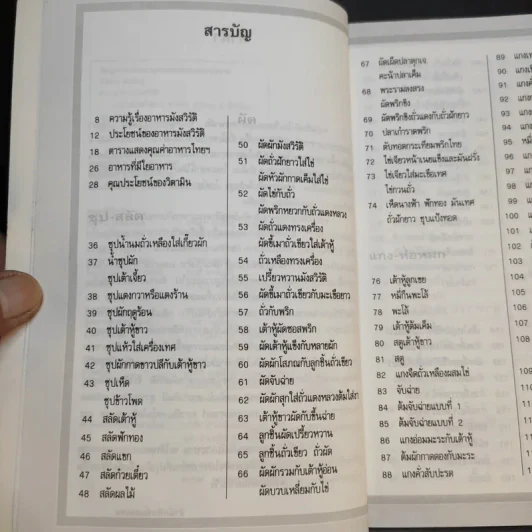 สารบัญ
8 ความรู้เรื่องอาหารมังสวิรัติ
12 ประโยชน์ของอาหารมังสวิรัติ
18 ตารางแสดงคุณค่าอาหารไทยฯ
26 อาหารที่มีใยอาหาร
28 คุณประโยชน์ของวิตามิน
ซุป-สลัด
36 ซุปน้ำนมถั่วเหลืองใส่เกี๊ยวผัก
37 น้ำซุปผัก
ซุปเต้าเจี้ยว
38 ซุปแดงกวาหรือแตงร้าน
39 ซุปผักฤดูร้อน
40 ซุปเต้าหู้ขาว
41 ซุปแห้วใส่เครื่องเทศ
42 ซุปผักกาดขาวปลีกับเต้าหู้ขาว
43 ซุปเห็ด
ซุปข้าวโพด
44 สลัดเต้าหู้
45 สลัดฟักทอง
46 สลัดแขก
47 สลัดก๋วยเตี๋ยว
48 สลัดผลไม้
ผัด
50 ผัดผักมังสวิรัติ
51 ผัดถั่วฝักยาวใส่ไข่
ผัดหัวผักกาดเค็มใส่ไข่
52 ผัดไข่กับถั่ว
ผัดพริกหยวกกับถั่วแดงหลวง
53 ผัดถั่วแดงทรงเครื่อง
ผัดขี้เมาถั่วเขียวใส่เต้าหู้
54 ถั่วเหลืองทรงเครื่อง
55 เปรี้ยวหวานมังสวิรัติ
56 ผัดขี้เมาถั่วเขียวกับมะเขือยาว
57 ถั่วกับพริก
58 เต้าหู้ผัดซอสพริก
59 ผัดเต้าหู้แข็งกับหลายผัก
60 ผัดผักโสภณกับลูกชิ้นถั่วเขียว
61 ผัดจับฉ่าย
62 ผัดผักสุกใส่ถั่วแดงหลวงต้มใส่งา
63 เต้าหู้ขาวผัดกับขึ้นฉ่าย
64 ลูกชิ้นผัดเปรี้ยวหวาน
65 ลูกชิ้นถั่วเขียว ถั่วผัด
66 ผัดผักรวมกับเต้าหู้อ่อน
ผัดบวบเหลี่ยมกับไข่
67 ผัดเผ็ดปลาดุกเจ
คะน้าปลาเค็ม
68 พระรามลงสรง
ผัดพริกขิง
69 ผัดพริกขิงถั่วแดงกับถั่วฝักยาว
70 ปลาเก๋าราดพริก
71 ตับทอดกระเทียมพริกไทย
72 ไข่เจียวหน้าเนยแข็งและมันฝรั่ง
73 ไข่เจียวใส่มะเขือเทศ
ไข่กวนถั่ว
74 เห็ดนางฟ้า ฟักทอง มันเทศ
ถั่วฝักยาว ชุบแป้งทอด
76 เต้าหู้ลูกเขย
77 หมี่กึนพะโล้
78 พะโล้
79 เต้าหู้ต้มเค็ม
80 สตูเต้าหู้ขาว
81 สตู
82 แกงจืดถั่วเหลืองผสมไข่
83 จับฉ่าย
84 ต้มจับฉ่ายแบบที่ 1
85 ต้มจับฉ่ายแบบที่ 2
86 แกงอ่อมมะระกับเต้าหู้
87 ต้มผักกาดดองกับมะระ
88 แกงคั่วสับปะรด
89
90
91
92
93
94
95
96
97
98
99
100
101
102
103
104
105
106
107
108